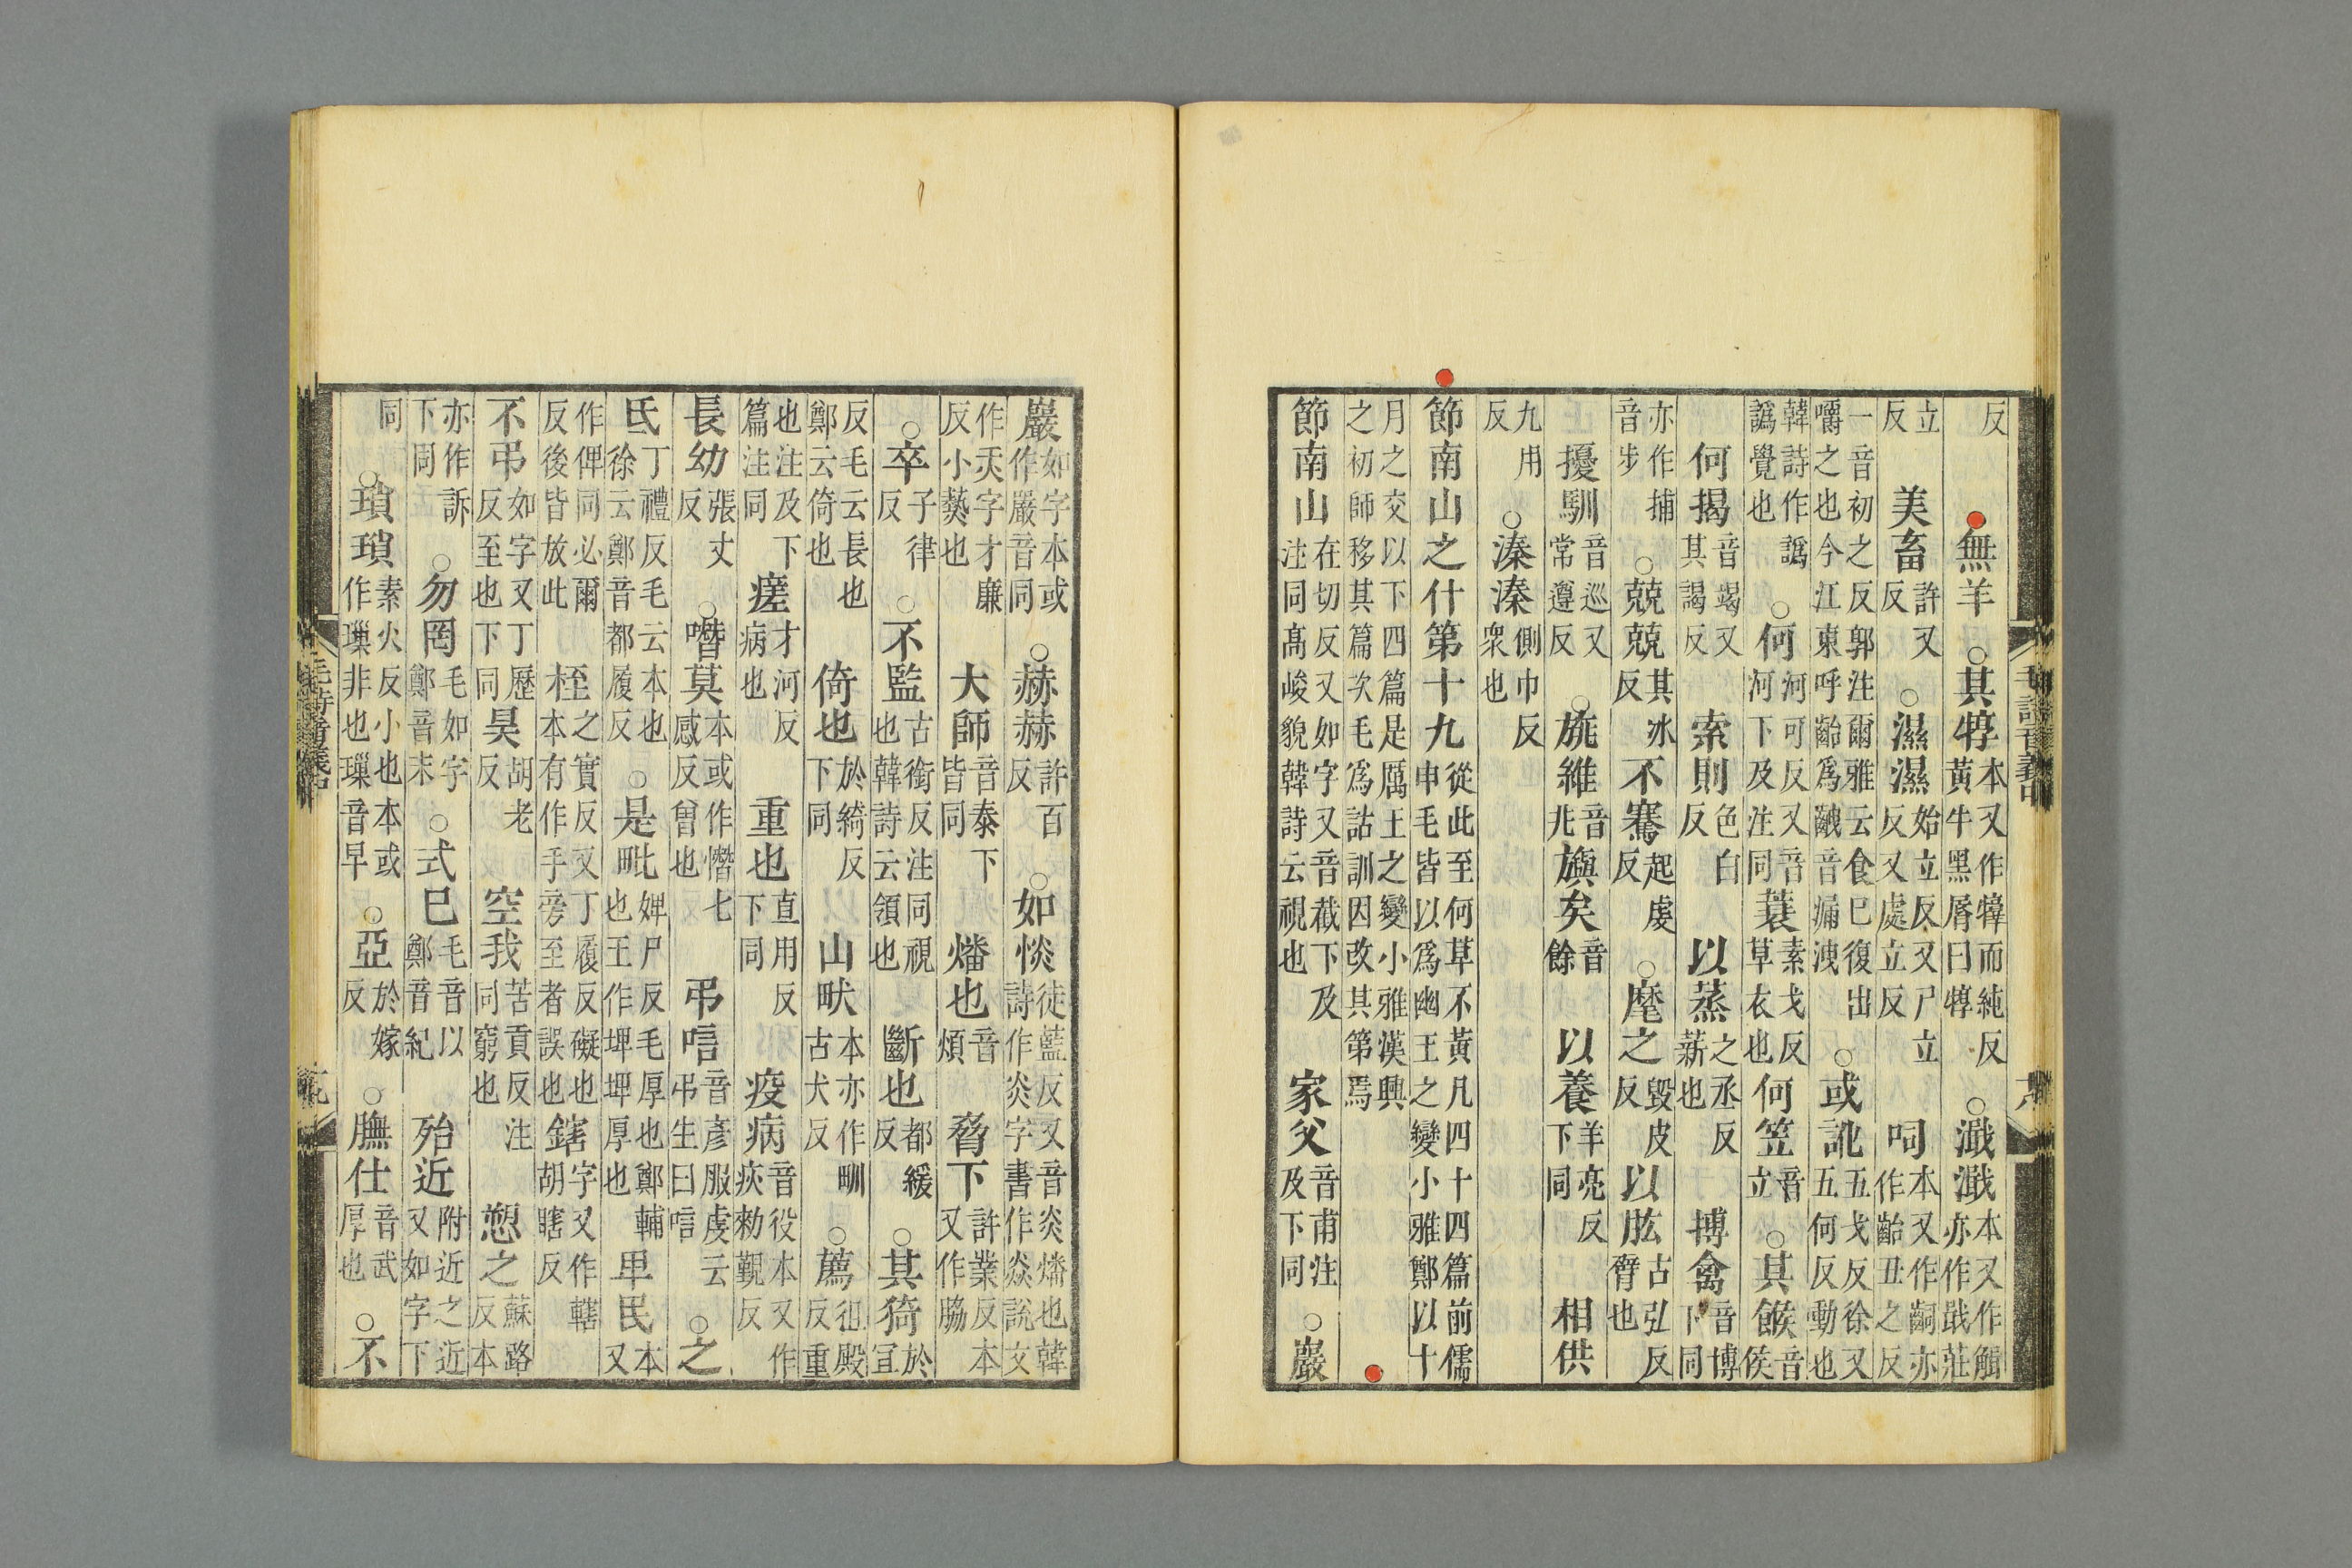 毛詩音義中
反 無羊 ○其犉本又作犉而純反黃牛黑脣曰犉 ○濈濈本又作觲亦作戢莊
立反 美畜許又反 ○濕濕始立反又尸立反又處立反 呞本又作嗣亦作齝丑之反
一音初之反郭注爾雅云食巳復出嚼之也今江東呼齝爲齛音漏洩 ○或訛五戈反徐又五何反動也
韓詩作譌譌覺也 ○何河可反又音河下及注同 蓑素戈反草衣也 何笠音立 ○其餱音侯
何揭音竭又其謁反 索則色白反 以蒸之丞反薪也 搏禽音博下同
亦作捕音步 ○兢兢其冰反 不騫起虔反 ○麾之毀皮反 以肱古弘反臂也
擾馴音巡又常遵反 ○旐維音兆 旟矣音餘 以養羊亮反下同 相供
九用反 ○溱溱側巾反衆也
節南山之什第十九從此至何草不黃凡四十四篇前儒申毛皆以爲幽王之變小雅鄭以十
月之交以下四篇是厲王之變小雅漢興之初師移其篇次毛爲詁訓因改其第焉
節南山在切反又如字又音截下及注同高峻貌韓詩云視也 家父音甫注及下同 ○巖
巖如字本或作嚴音同 ○赫赫許百反 ○如惔徒藍反又音炎燔也韓詩作炎字書作焱說文
作天字才廉反小爇也 大師音泰下皆同 燔也音煩 脅下許業反本又作脇
○卒子律反 ○不監古銜反注同視也韓詩云領也 斷也都緩反 ○其猗於宜
反毛云長也鄭云倚也 倚也於綺反下同 山畎本亦作甽古犬反 ○薦徂殿反重
也注及下篇注同 瘥才河反病也 重也直用反下同 疫病音役本又作疢勑覲反
長幼張丈反 ○噆莫本或作憯七感反曾也 弔唁音彥服虔云弔生曰唁 ○之
氐丁禮反毛云本也徐云鄭音都履反 ○是毗婢尸反毛厚也鄭輔也王作埤埤厚也 卑民本又
作俾同必爾反後皆放此 桎之實反又丁履反礙也本有作手旁至者誤也 鎋字又作轄胡瞎反
不弔如字又丁歷反至也下同 昊胡老反 空我苦貢反注同窮也 愬之蘇路反本
亦作訴下同 ○勿罔毛如字鄭音末 ○式巳毛音以鄭音紀 殆近附近之近又如字下
同 ○瑣瑣素火反小也本或作璅非也璅音早 ○亞於嫁反 ○膴仕音武厚也 ○不
毛詩音義中